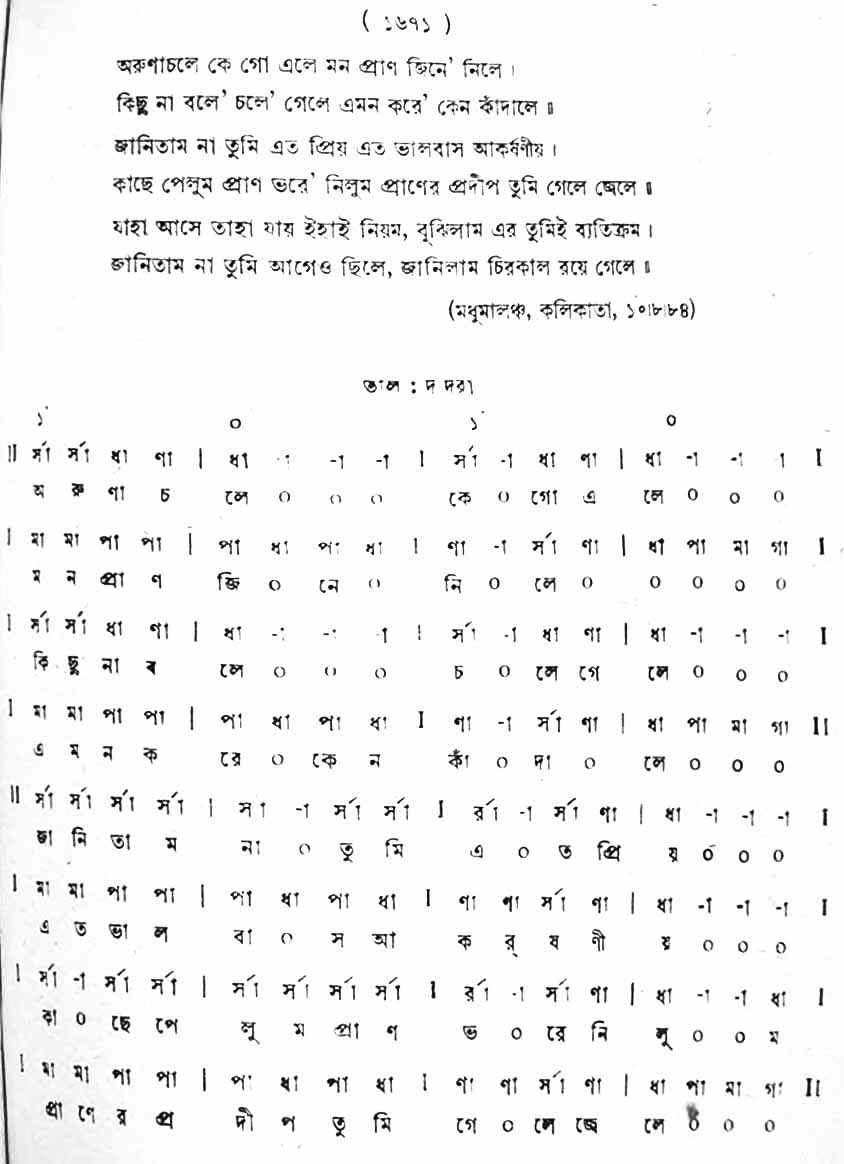 ( ১৬৭১ )
অরুণাচলে কে গো এলে মন প্রাণ জিনে' নিলে ।
কিছু না বলে' চলে' গেলে এমন করে' কেন কাঁদালে ॥
জানিতাম না তুমি এত প্রিয় এত ভালবাস আকর্ষণীয় ।
কাছে পেলুম প্রাণ ভরে' নিলুম প্রাণের প্রদীপ তুমি গেলে জ্বেলে ॥
যাহা আসে তাহা যায় ইহাই নিয়ম, বুঝিলাম এর তুমিই ব্যতিক্রম ।
জানিতাম না তুমি আগেও ছিলে, জানিলাম চিরকাল রয়ে গেলে ॥
(মধুমালঞ্চ, কলিকাতা, ১০।৮।৮৪)
তাল : দ দরা
১´ ০ ১´ ০
II র্সা র্সা ধা ণা | ধা -া -া -া I র্সা -া ধা ণা | ধা -া -া া I
অ রু ণা চ লে ০ ০ ০ কে ০ গো এ লে ০ ০ ০
I মা মা পা পা | পা ধা পা ধা I ণা -া র্সা ণা | ধা পা মা গা I
ম ন প্রা ণ জি ০ নে ০ নি ০ লে ০ ০ ০ ০ ০
I র্সা র্সা ধা ণা | ধা -া -া -া I র্সা -া ধা ণা | ধা -া -া -া I
কি ছু না ব লে ০ ০ ০ চ ০ লে গে লে ০ ০ ০
I মা মা পা পা | পা ধা পা ধা I ণা -া র্সা ণা | ধা পা মা গা II
এ ম ন ক রে ০ কে ন কাঁ ০ দা ০ লে ০ ০ ০
II র্সা র্সা র্সা র্সা | র্সা -া র্সা র্সা I র্রা -া র্সা ণা | ধা -া -া -া I
জা নি তা ম না ০ তু মি এ ০ ত প্রি য় ০ ০ ০
I মা মা পা পা | পা ধা পা ধা I ণা ণা র্সা ণা | ধা -া -া -া I
এ ত ভা ল বা ০ স আ ক র্ ষ ণী য় ০ ০ ০
I র্সা -া র্সা র্সা | র্সা র্সা র্সা র্সা I র্রা -া র্সা ণা | ধা -া -া ধা I
কা ০ ছে পে লু ম প্রা ণ ভ ০ রে নি লু ০ ০ ম
I মা মা পা পা | পা ধা পা ধা I ণা ণা র্সা ণা | ধা পা মা গা II
প্রা ণে র প্র দী প তু মি গে ০ লে জ্বে লে ০ ০ ০